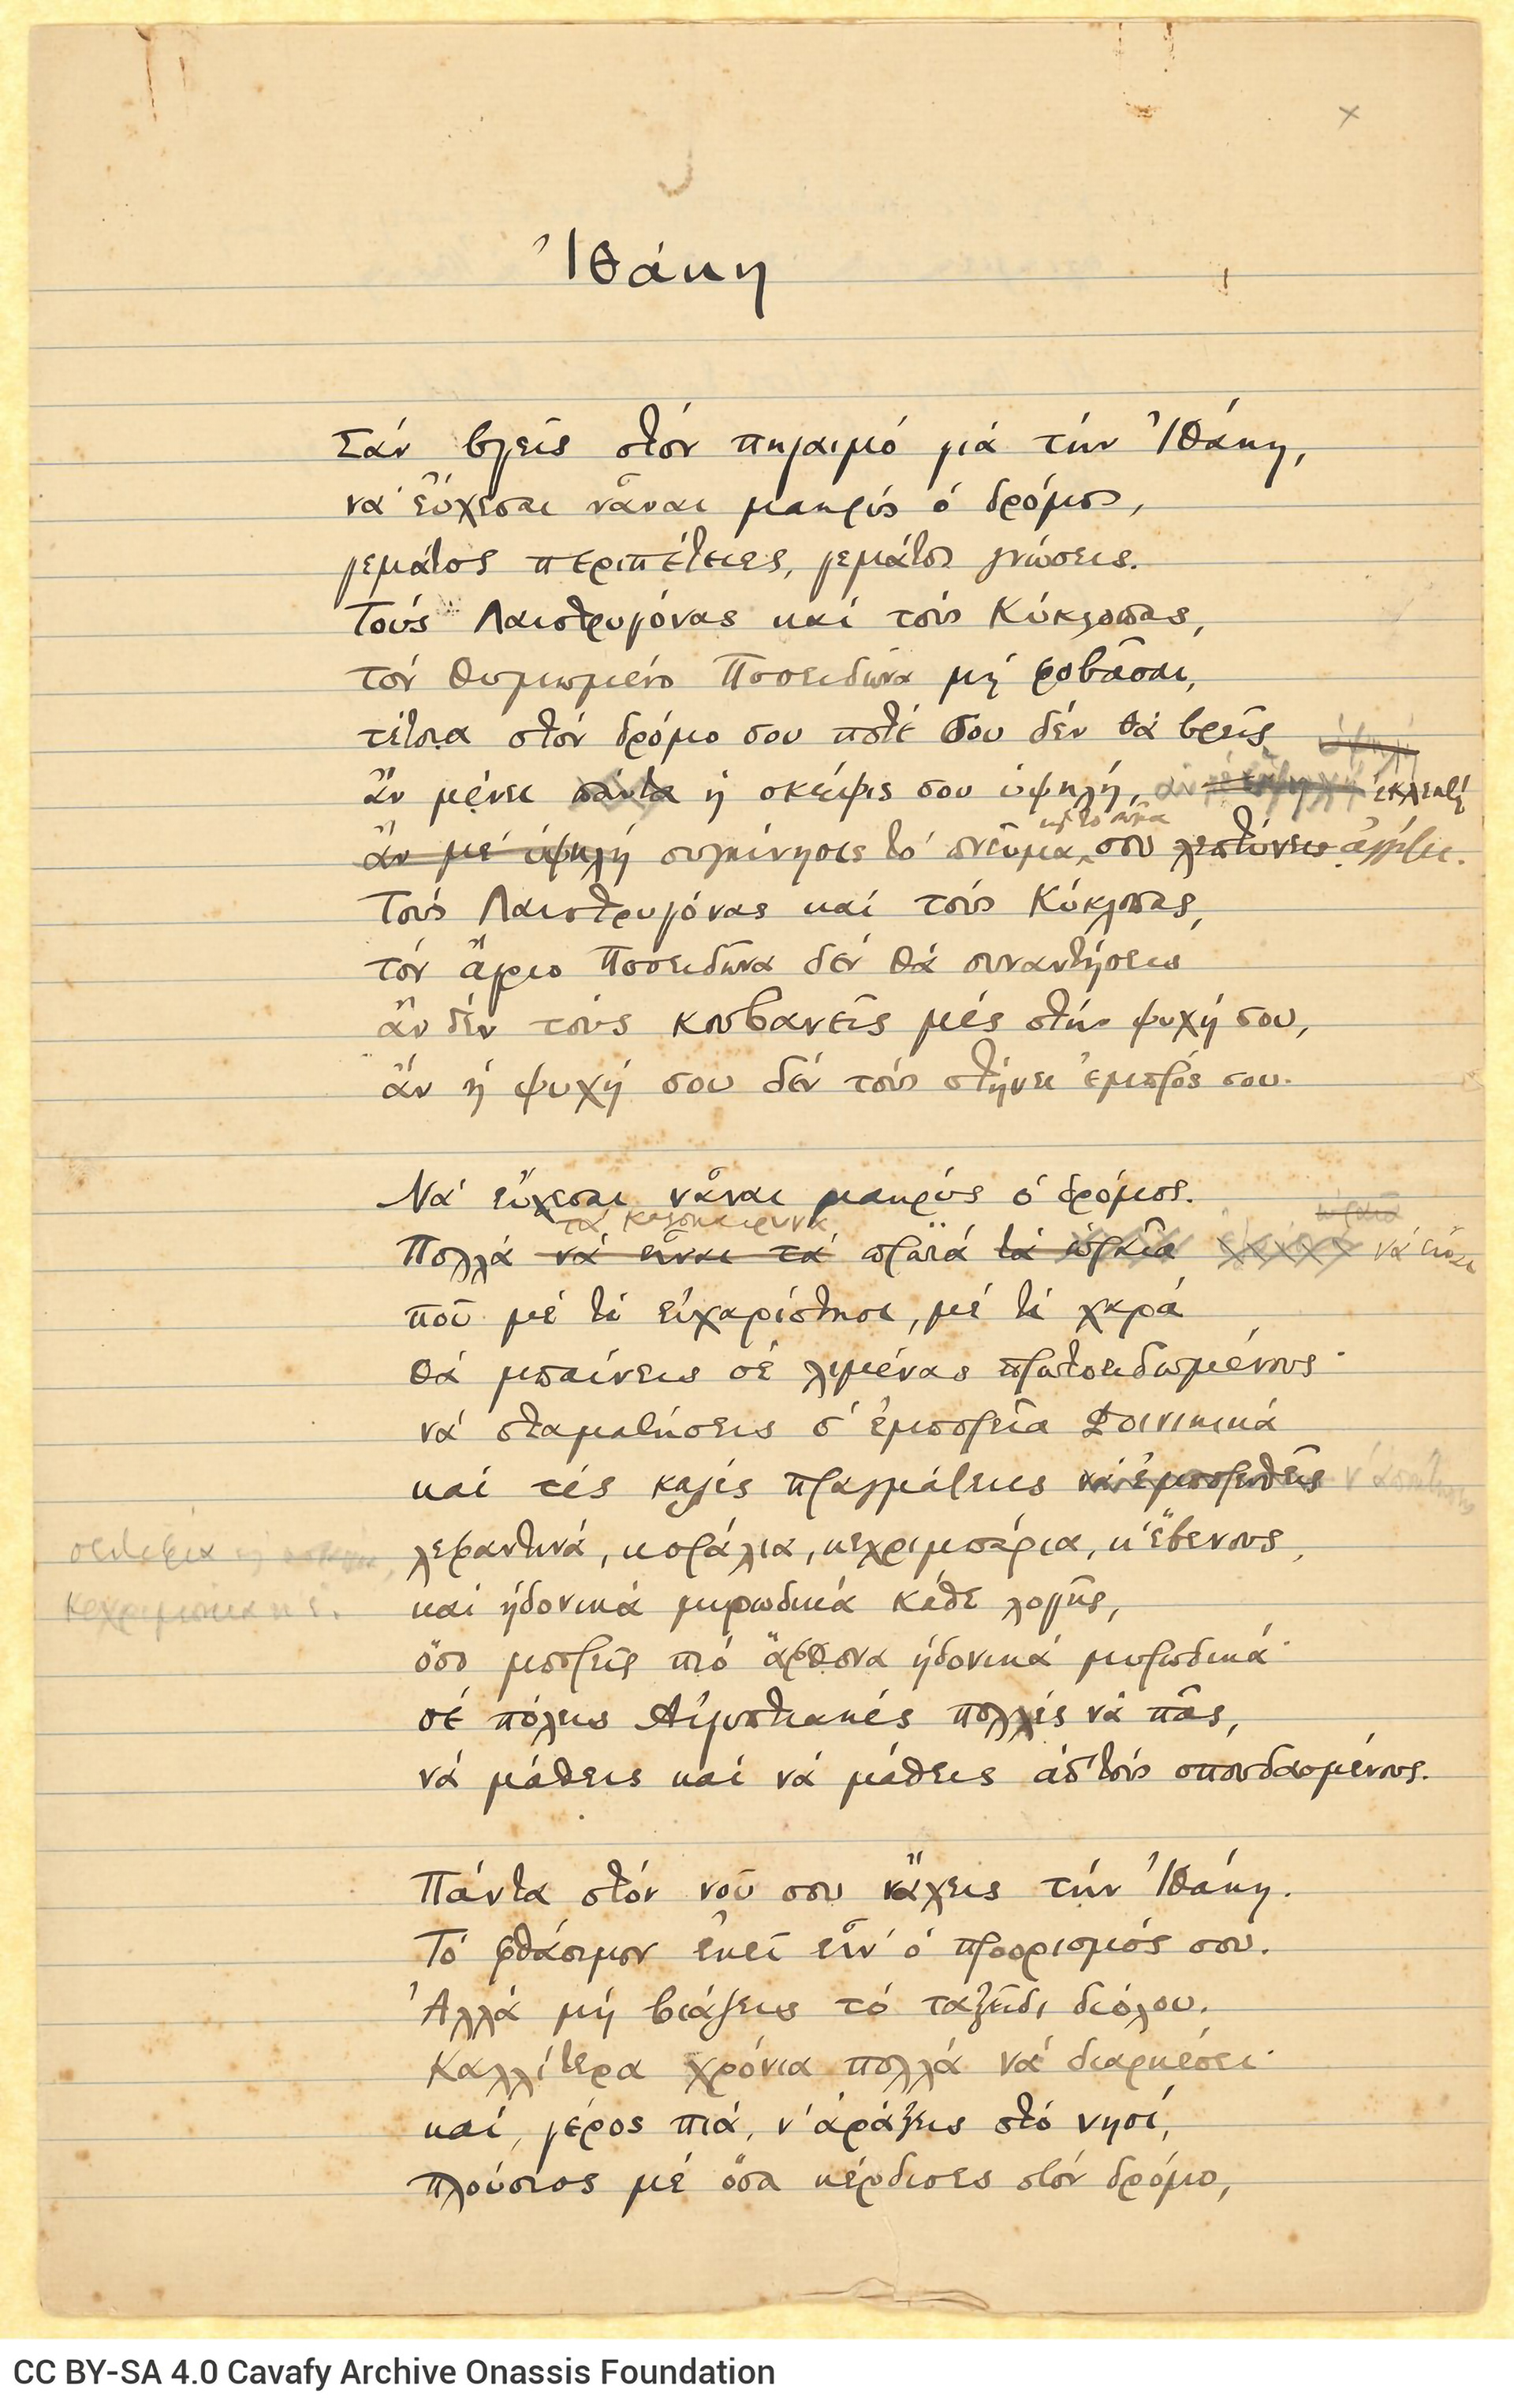 Ἰθάκη
Σάν βγεῖς στόν πηγαιμό γιά τήν Ἰθάκη,
νά εὔχεσαι νἆναι μακρύς ὁ δρόμος,
γεμάτος περιπέτειες, γεμάτος γνώσεις.
Τούς Λαιστρυγόνας καί τούς Κύκλωπας,
τόν θυμωμένο Ποσειδῶνα μή φοβᾶσαι,
τέτοια στόν δρόμο σου ποτέ σου δέν θά βρεῖς
ὑψηλή
ἄν μένει πάντα ἡ σκέψις σου ὑψηλή, ἄν ἐκλεκτή
καί τό σῶμα
ἄν μέ ὑψηλή συγκίνησις τό πνεῦμα σου λεπτύνει ἀγγίζει.
Τούς Λαιστρυγόνας καί τούς Κύκλωπας,
τόν ἄγριο Ποσειδῶνα δέν θά συναντήσεις
ἄν δέν τούς κουβανεῖς μές στήν ψυχή σου,
ἄν ἡ ψυχή σου δέν τούς στήνει ἐμπρός σου.
Νά εὔχεσαι νἆναι μακρύς ὁ δρόμος.
τά καλοκαιρινά
ὡραῖα
Πολλά νά εἶναι τά πρωϊά τά ὡραῖα νά εἶναι
πού μέ τί εὐχαρίστησι, μέ τί χαρά
θά μπαίνεις σέ λιμένας πρωτοειδωμένους·
νά σταματήσεις σ' ἐμπορεῖα Φοινικικά
καί τές καλές πραγμάτειες νά ἐμπορευθεῖς ν' ἀποκτήσεις
σεντέφια
λεφαντινά, κοράλια, κεχριμπάρια, κ' ἔβενους,
κεχριμπάρια κ' ἔ.
καί ἡδονικά μυρωδικά κάθε λογῆς,
ὅσο μπορεῖς πιό ἄφθονα ἡδονικά μυρωδικά·
σέ πόλεις Αἰγυπτιακές πολλές νά πᾶς,
νά μάθεις καί νά μάθεις ἀπ' τούς σπουδασμένους.
Πάντα στόν νοῦ σου νἄχεις τήν Ἰθάκη.
Τό φθάσιμον ἐκεῖ εἶν' ὁ προορισμός σου.
Ἀλλά μή βιάζεις τό ταξεῖδι διόλου.
Καλλίτερα χρόνια πολλά νά διαρκέσει·
καί, γέρος πιά, ν' ἀράξεις στό νησί,
πλούσιος μέ ὅσα κέρδισες στόν δρόμο,
CC BY-SA 4.0 Cavafy Archive Onassis Foundation